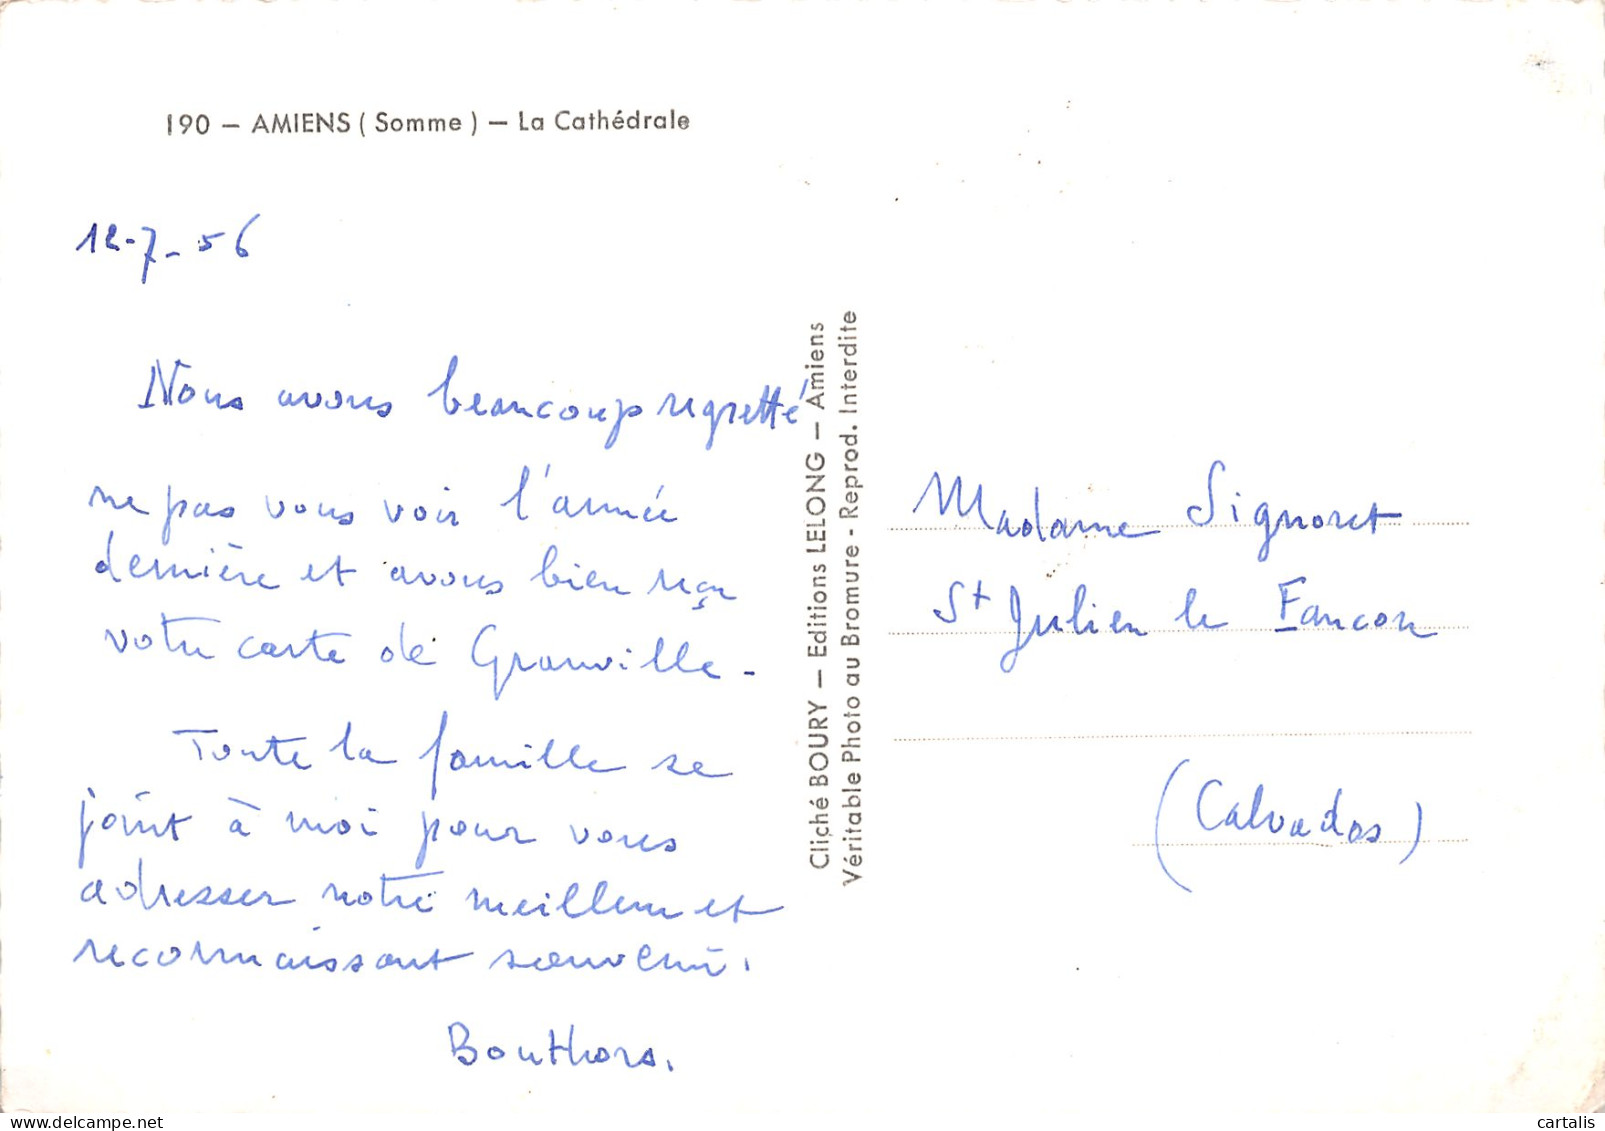 190 — AMIENS ( Somme ) — La Cathédrale
12-7-56
Nous avons beaucoup regretté
ne pas vous voir l'année
dernière et avons bien reçu
votre carte de Granville -
Toute la famille se
joint à moi pour vous
adresser notre meilleur et
reconnaissant souvenir.
Bouthors.
Cliché BOURY — Editions LELONG — Amiens
Véritable Photo au Bromure - Reprod. Interdite
Madame Signoret
St Julien le Faucon
(Calvados)
cartalis